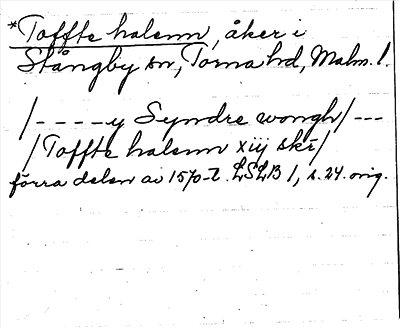 *Toffte halsenn, åker i
Stångby sn, Torna hd, Malm. l.
/- - - - y Syndre wongh/ - - -
/Toffte halsenn xiij skr/
förra delen av 1570-t. LSLB 1, s. 24. orig.